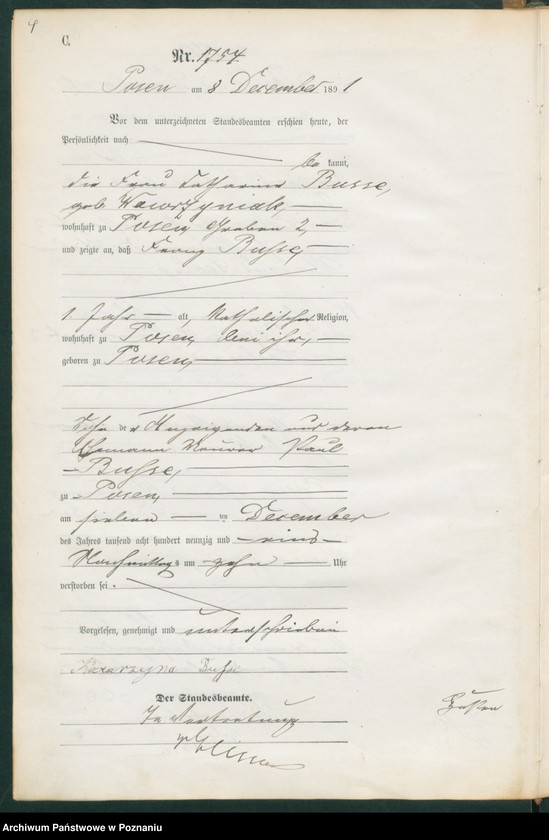 4
C.
Nr. 1754.
Posen am 8 December 1891
Vor dem unterzeichneten Standesbeamten erschien heute, der
Persönlichkeit nach
be kannt,
die Frau Catharina Busse,
geb. Wawrzyniak,
wohnhaft zu Posen, Graben 2,
und zeigte an, daß Franz Busse,
1 Jahr alt, katholischer Religion,
wohnhaft zu Posen, bei ihr,
geboren zu Posen,
Sohn der Anzeigenden und deren
Ehemann Maurer Paul
Busse,
zu Posen,
am sieben ten December
des Jahres tausend acht hundert neunzig und eins
Nachmittags um zehn Uhr
verstorben sei.
Vorgelesen, genehmigt und unterschrieben
Katarzyna Buse
Der Standesbeamte.
In Vertretung
Archiwum Państwowe w Poznaniu